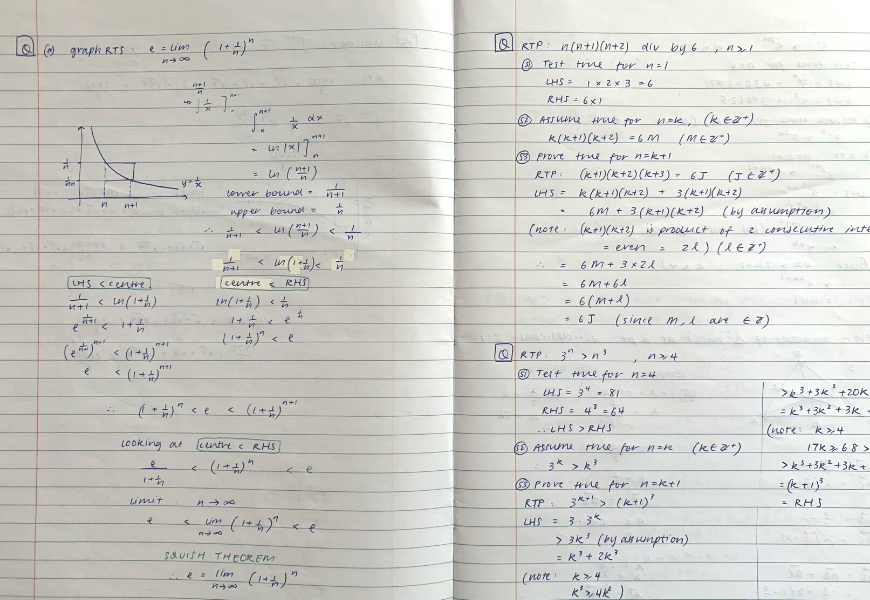 Q (a) graph RTS: e = lim n→∞ (1+1/n)^n
∫_n^{n+1} 1/x dx
= ln|x| ]_n^{n+1}
= ln(n+1/n)
lower bound = 1/n+1
upper bound = 1/n
y=1/x
n n+1
∴ 1/n+1 < ln(n+1/n) < 1/n
1/n+1 < ln(1+1/n) < 1/n
LHS < centre
1/n+1 < ln(1+1/n)
e^{1/n+1} < 1+1/n
(e^{1/n+1})^{n+1} < (1+1/n)^{n+1}
e < (1+1/n)^{n+1}
centre < RHS
ln(1+1/n) < 1/n
1+1/n < e^{1/n}
(1+1/n)^n < e
∴ (1+1/n)^n < e < (1+1/n)^{n+1}
Looking at centre < RHS
e/1+1/n < (1+1/n)^n < e
Limit n→∞
e < lim n→∞ (1+1/n)^n < e
SQUISH THEOREM
∴ e = lim n→∞ (1+1/n)^n
Q RTP: n(n+1)(n+2) div by 6, n≥1
S1 Test true for n=1
LHS = 1×2×3 = 6
RHS = 6×1
S2 Assume true for n=k, (k∈Z⁺)
k(k+1)(k+2) = 6M (M∈Z⁺)
S3 Prove true for n=k+1
RTP: (k+1)(k+2)(k+3) = 6J (J∈Z⁺)
LHS = k(k+1)(k+2) + 3(k+1)(k+2)
= 6M + 3(k+1)(k+2) (by assumption)
(note: (k+1)(k+2) is product of 2 consecutive inte
= even = 2l) (l∈Z⁺)
∴ = 6M + 3×2l
= 6M+6l
= 6(M+l)
= 6J (since M, l are ∈Z)
Q RTP: 3ⁿ > n³, n≥4
S1 Test true for n=4
LHS = 3⁴ = 81
RHS = 4³ = 64
∴ LHS > RHS
S2 Assume true for n=k (k∈Z⁺)
∴ 3^k > k³
S3 Prove true for n=k+1
RTP: 3^{k+1} > (k+1)³
LHS = 3·3^k
> 3k³ (by assumption)
= k³ + 2k³
(note: k≥4
k³≥4k²)
>k³+3k²+20k
=k³+3k²+3k+
(note: k≥4
17k≥68>
>k³+3k²+3k+
=(k+1)³
= RHS